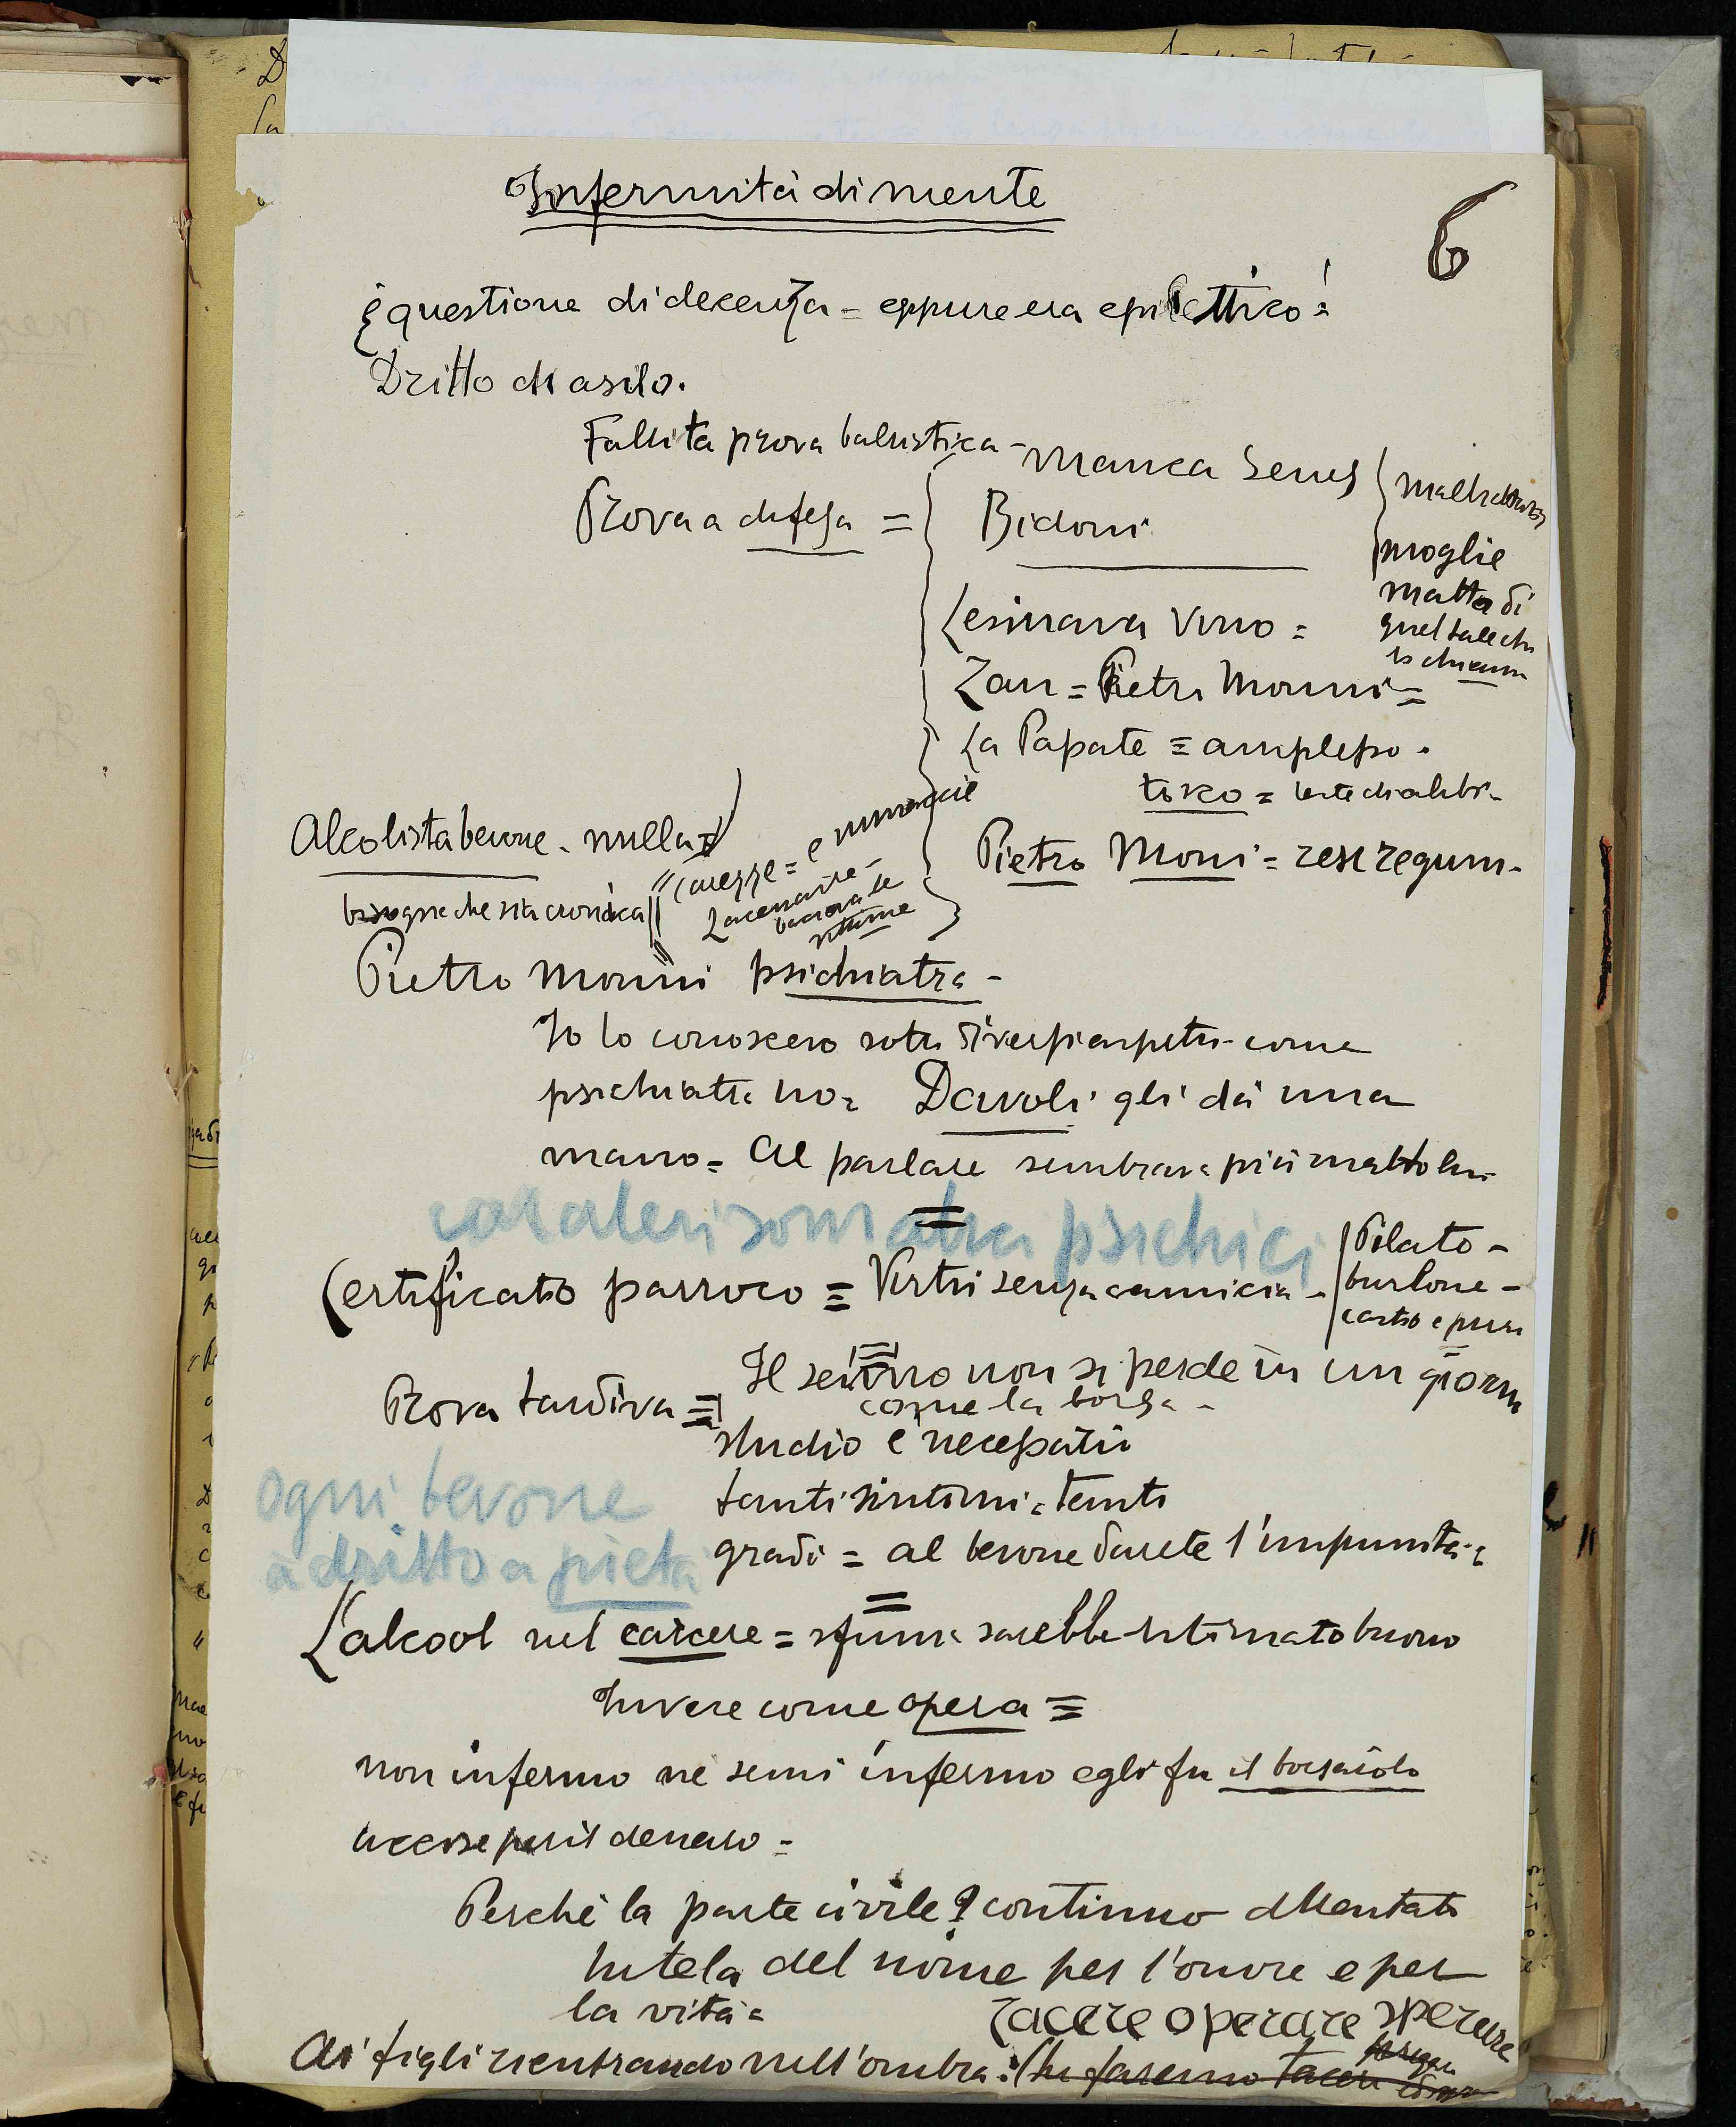 Infermità di mente
6
È questione di decenza = eppure era epilettico!
Dritto di asilo.
Fallita prova balistica -
Manca Senes
Prova a difesa =
Bidoni
moglie
matta di
quel tale che
Lesinava vino =
Zan = Pietri Monni =
La Papate = amplesso.
tisico = teste di alibi -
Pietro Monni = rex regum -
Alcolista beone - nulla
e minaccie
carezze =
baciava le
vittime
bisogna che sia cronica
Pietro Monni psichiatra -
Io lo conoscevo sotto diversi aspetti - come
psichiatra no = Davoli gli dà una
mano = Al parlare sembrava più matto lui
caratteri somatici psichici
Certificato parroco = Virtù senza camicia -
Pilato -
burlone -
casto e puro
Il senno non si perde in un giorno
come la borsa -
Prova tardiva =
studio è necessario
tanti sintomi = tanti
gradi = al beone darete l'impunità =
ogni beone
à dritto a pietà
L'alcool nel carcere = sfuma sarebbe ritornato buono
vivere come opera =
non infermo nè semi infermo egli fu il borsaiolo
uccise per il denaro =
Perchè la parte civile? continuo attentato
tutela del nome per l'onore e per
la vita =
Tacere operare sperare
Ai figli rientrando nell'ombra: Che faremo tacere